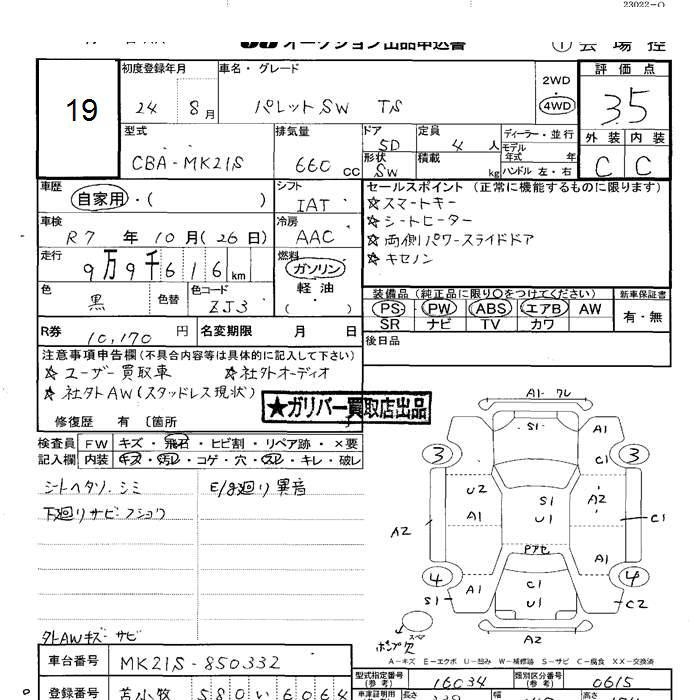 23022-0
オークション出品申込書 ① 会場控
19
初度登録年月 24 8月
車名・グレード パレットSW TS
2WD 4WD
評価点 35
外装 C 内装 C
型式 CBA-MK21S
排気量 660 cc
ドア 5D 形状 SW
定員 4人 積載 kg
ディーラー・並行
モデル年式 年式
ハンドル 左・右
車歴 自家用・( )
シフト IAT
車検 R7年10月(26日)
冷房 AAC
走行 9万9千616km
燃料 ガソリン 軽油 ( )
色 黒 色替 色コード ZJ3
R券 10,170円 名変期限 月 日
セールスポイント (正常に機能するものに限ります)
☆スマートキー
☆シートヒーター
☆両側パワースライドドア
☆キセノン
装備品 (純正品に限り○をつけてください) 新車保証書
PS PW ABS エアB AW 有・無
SR ナビ TV カワ
後日品
注意事項申告欄(不具合内容等は具体的に記入して下さい)
☆ユーザー買取車 ☆社外オーディオ
☆社外AW(スタッドレス現状)
★ガリバー買取店出品
修復歴 有 〔箇所 〕
検査員 FW キズ・飛石・ヒビ割・リペア跡・×要
記入欄 内装 キズ・汚レ・コゲ・穴・スレ・キレ・破レ
シートヘタリ、シミ E/g廻り異音
下廻りサビ・フショウ
外AWキズ・サビ
A1 ワレ
S1 A1
3 C1 3
U2 S1 A2
A1 U1
A2 C1
Pアセ
A1 C1 A1
4 U1 4
S1 A1 C2
A2
スペア
ポンプ欠
A-キズ E-エクボ U-凹み W-補修跡 S-サビ C-腐食 XX-交換済
車台番号 MK21S-850332
型式指定番号(参考) 16034 類別区分番号(参考) 0615
登録番号 苫小牧 580 い 6064
車庫証明用(参考) 長さ 幅 高さ